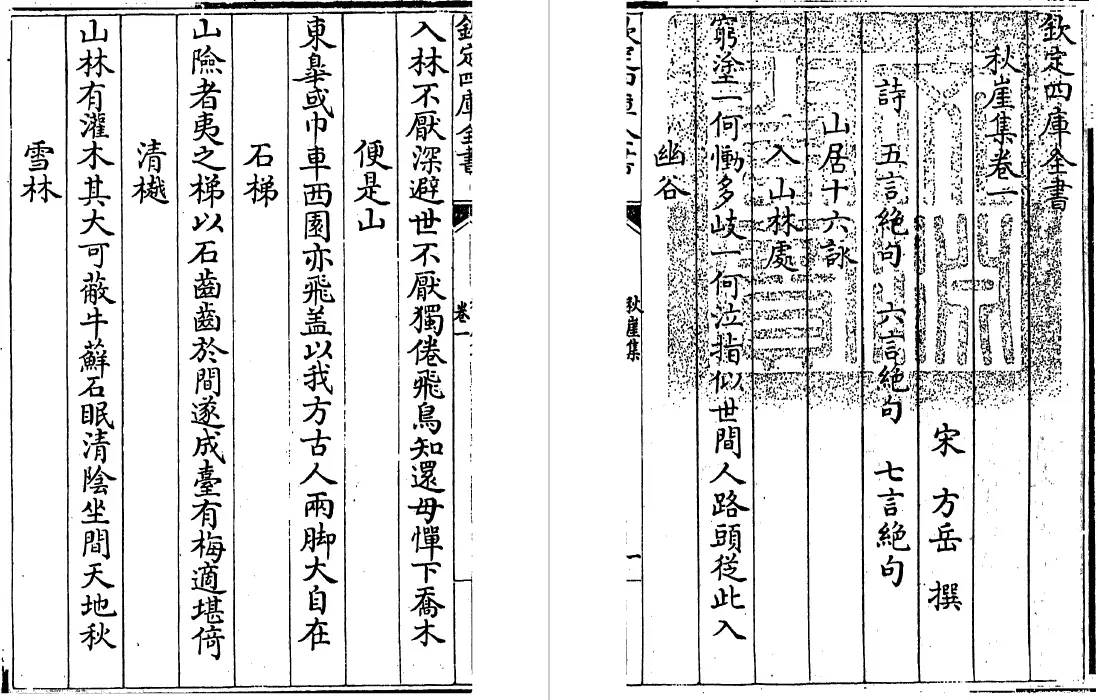 欽定四庫全書
秋崖集卷一
宋 方岳 撰
詩 五言絶句 六言絶句 七言絶句
山居十六詠
入山林處
窮塗一何慟多岐一何泣指似世間人路頭從此入
幽谷
秋崖集
一
欽定四庫全書
卷一
入林不厭深避世不厭獨倦飛鳥知還毋憚下喬木
便是山
東皐或巾車西園亦飛盖以我方古人兩脚大自在
石梯
山險者夷之梯以石齒齒於間遂成臺有梅適堪倚
清樾
山林有灌木其大可蔽牛蘚石眠清陰坐間天地秋
雪林